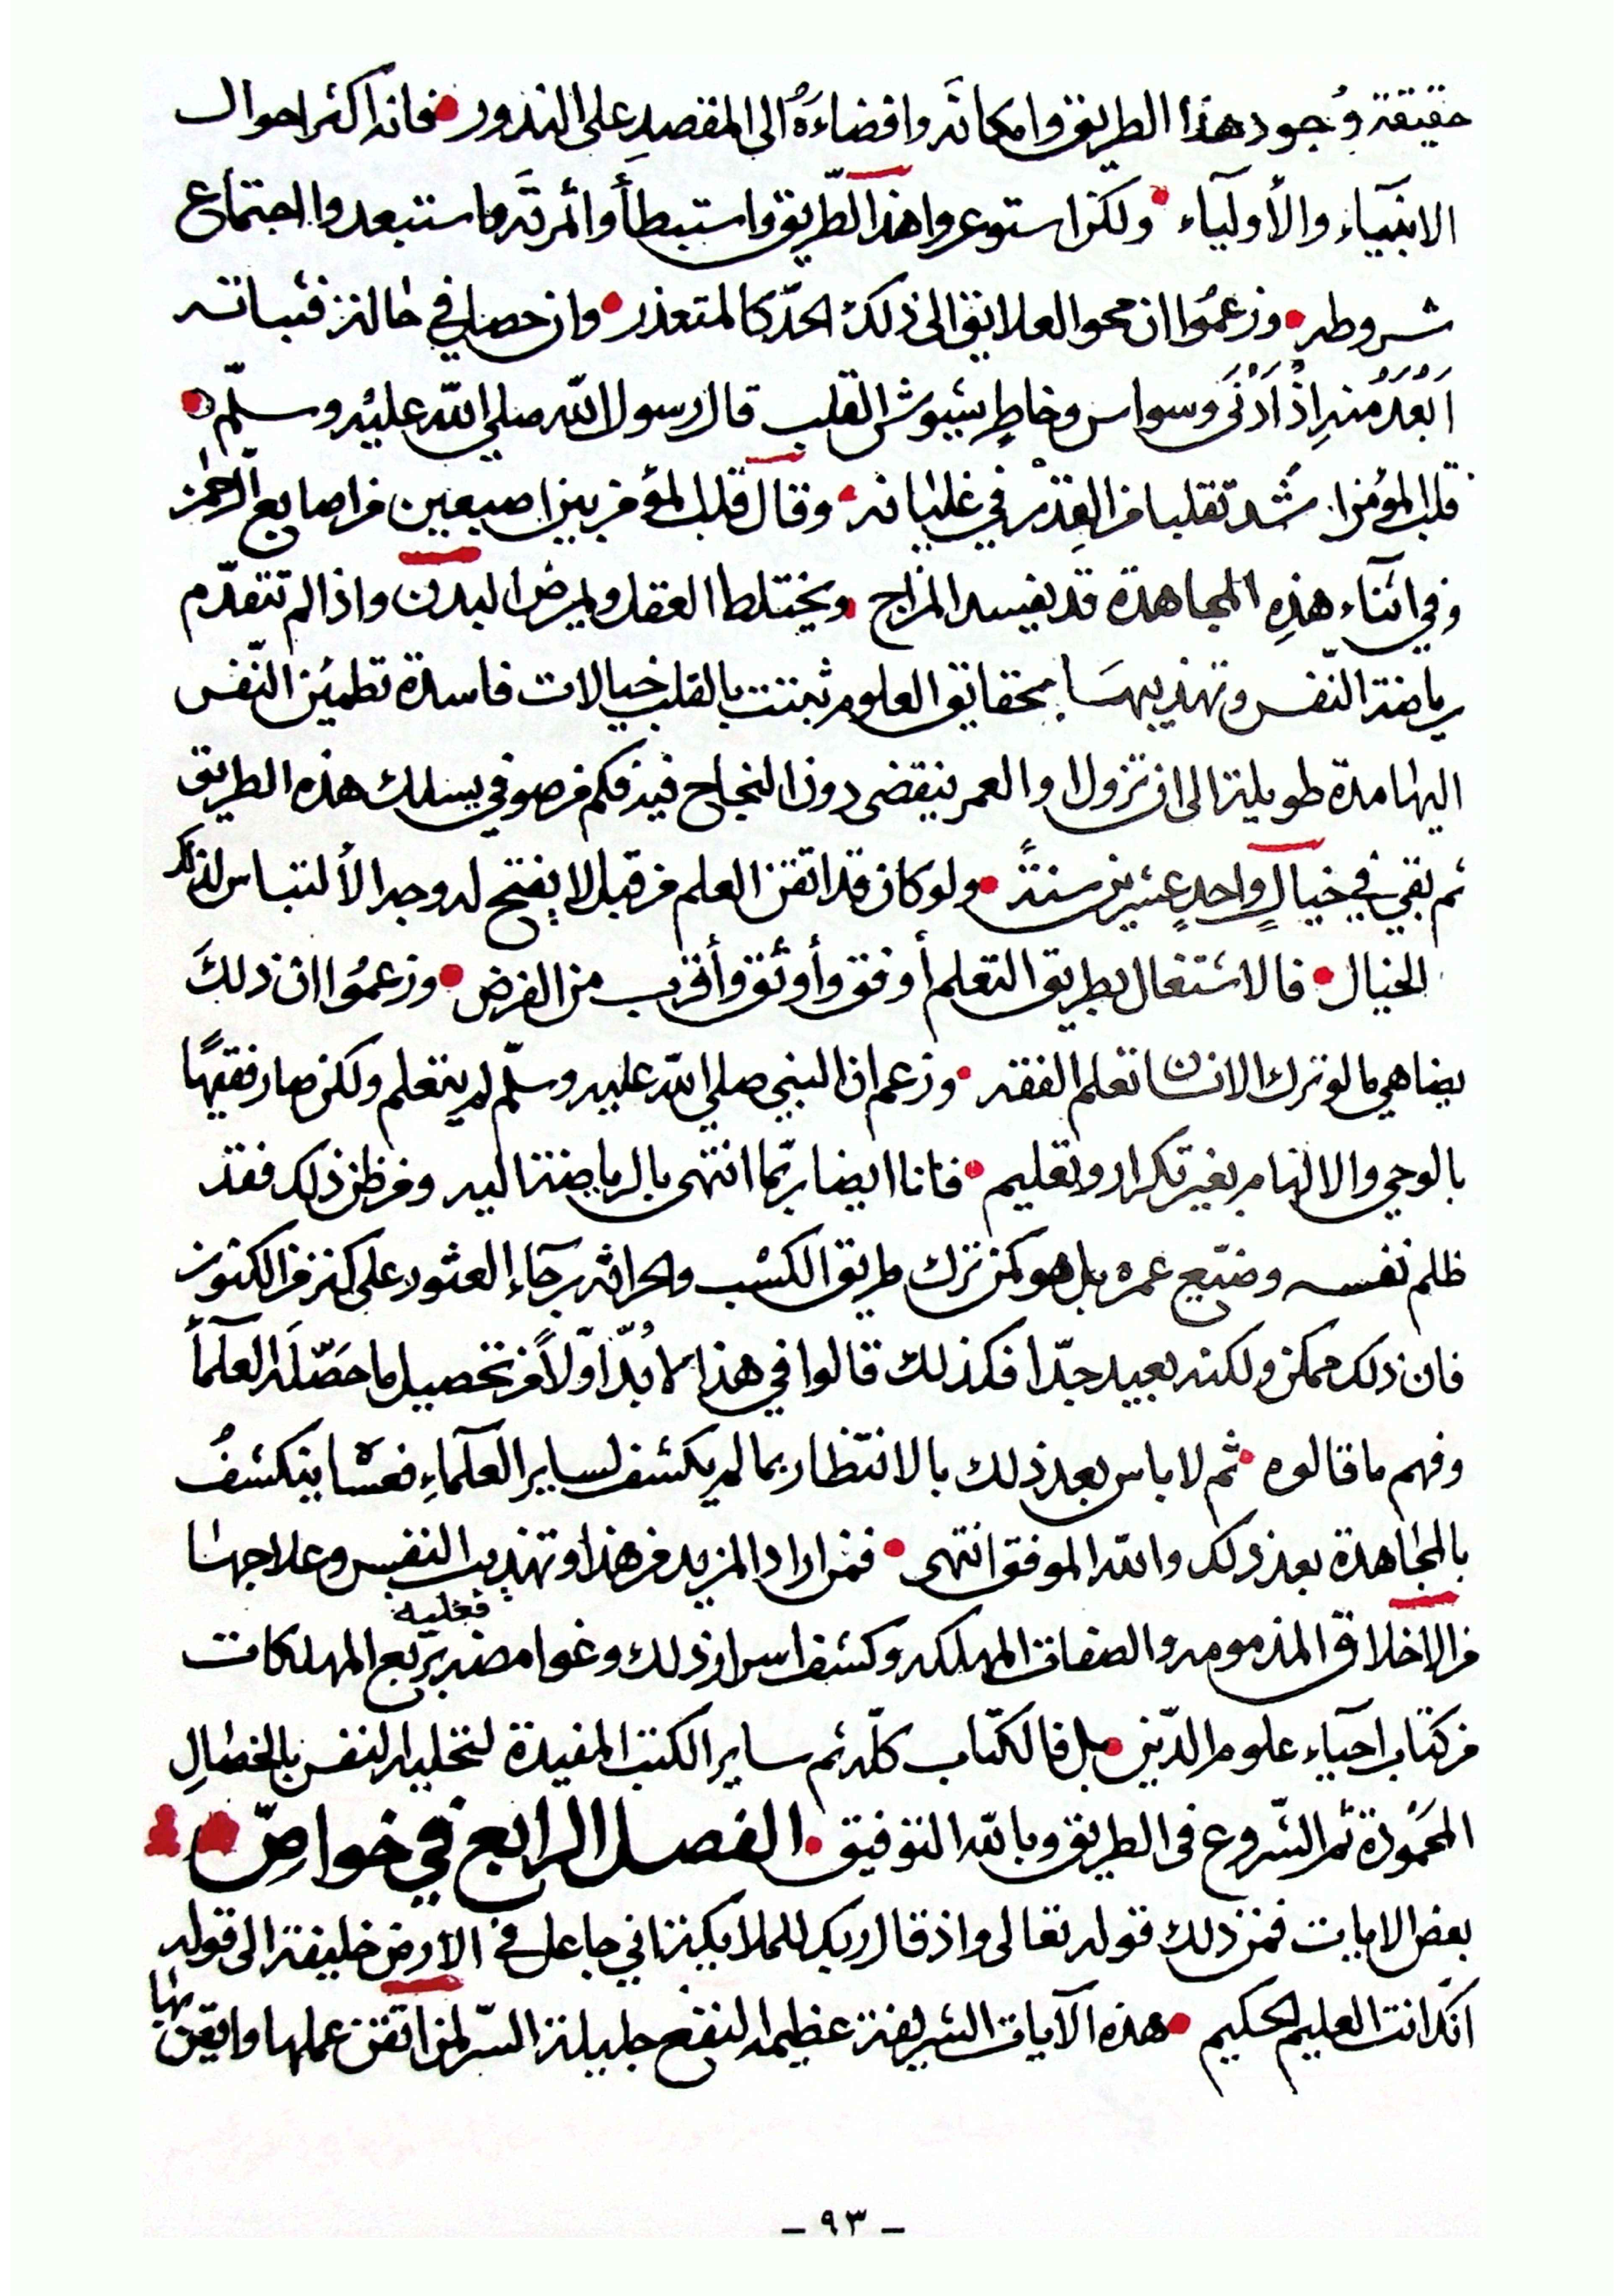 حقيقة وُجود هذا الطريق وامكانَه وافضاءَهُ الى المقصدِ على الندور • فانه اكثر احوال
الانبيآء والأوليآء • ولكن استوعروا هذا الطّريق واستبطأوا ثمرتَه واستبعدوا اجتماع
شروطه • وزعمُوا ان محو العلايق الى ذلك الحدّ كالمتعذر • وان حصل في حالة فثباته
اَبْعَدُ منه اِذْ اَدْنَى وسواس وخاطٍر يشوش القلب قال رسول اللّه صلي اللّه عليْه وسلّم •
قلب المؤمن اشُد تقلبا من القِدْر في غليانه • وقال قلب المؤمن بين اصبعين من اصابع الرّحمٰن
وفي اثنآء هذِه المجاهدة قد يفسد المزاج • ويختلط العقل ويمرض البدن واذا لم تتقدّم
رياضة النّفس وتهذيبهَا بحقايق العلوم ثبتت بالقلب خيالات فاسدة تطمئن النّفس
اليها مدة طويلة الى ان تزول والعمر ينقضى دون النجاح فيه فكم من صوفي يسلك هذه الطريق
ثم بقي في خيالٍ واحدٍ عشرين سنةً • ولو كان قد اتقن العلم من قبل لا يفتح له وجه الألتباس لذلك
الخيال • فالاشتغال بطريق التعلم أوفق وأوثق وأقرب من الغرض • وزعمُوا ان ذلكَ
يضاهي ما لو ترك الانسان تعلم الفقه • وزعم ان النبي صلي اللّه عليه وسلّم لم يتعلم ولكن صار فقيهًا
بالوحي والالهام بغير تكرار وتعليم • فانا ايضا ربّما انتهى بالرياضة اليه ومن ظن ذلك فقد
ظلم نفسه وضيّع عمره بل هو كمن ترك طريق الكسْب والحراثه برجآء العثور على كنز من الكنوز
فان ذلك ممكن ولكنه بعيد جدّا فكذلك قالوا في هذا لا بُدّ اوّلاً من تحصيل ما حَصّلَه العلمآء
وفهم ما قالوه • ثم لا باس بعد ذلك بالانتظار بما لم يكشف لساير العلمآءِ فعسٰا ينكشفُ
بالمجاهدة بعد ذلك واللّه الموفق انتهى • فمن اراد المزيد من هذا وتهذيب النفس وعلاجها
من الاخلاق المذمومه والصفات المهلكه وكشف اسرار ذلك وغوامضه فعليه بربع المهلكات
من كتاب احيآء علوم الدّين • بل فالكتاب كلّه ثم ساير الكتب المفيدة لتحلية النفس بالخصالِ
المحمُودة ثم الشّروع فى الطريق وباللّه التوفيق • الفصل الرابع في خواصّ
بعض الايات فمن ذلك قوله تعالى واذ قال ربك للملايكة اني جاعل في الارض خليفة الى قوله
انّكَ انت العليم الحكيم • هذه الآيات الشريفة عظيمة النفع جليلة السّر لمن اتقن عملها وايقن بها
- ٩٣ -